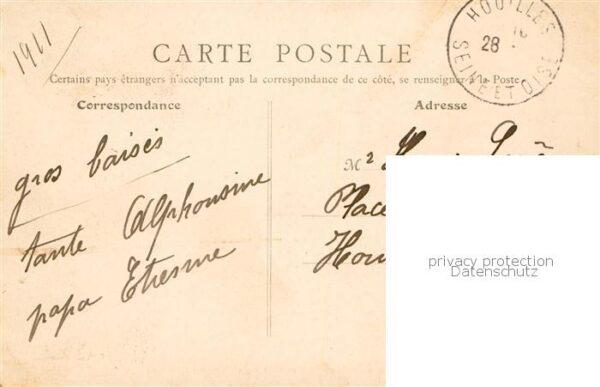 1911
CARTE POSTALE
Certains pays étrangers n'acceptant pas la correspondance de ce côté, se renseigner à la Poste
HOUILLES
28
SEINE ET OISE
Correspondance
Adresse
gros baisés
tante Alphonsine
papa Etienne
M
Place
Hou
privacy protection
Datenschutz